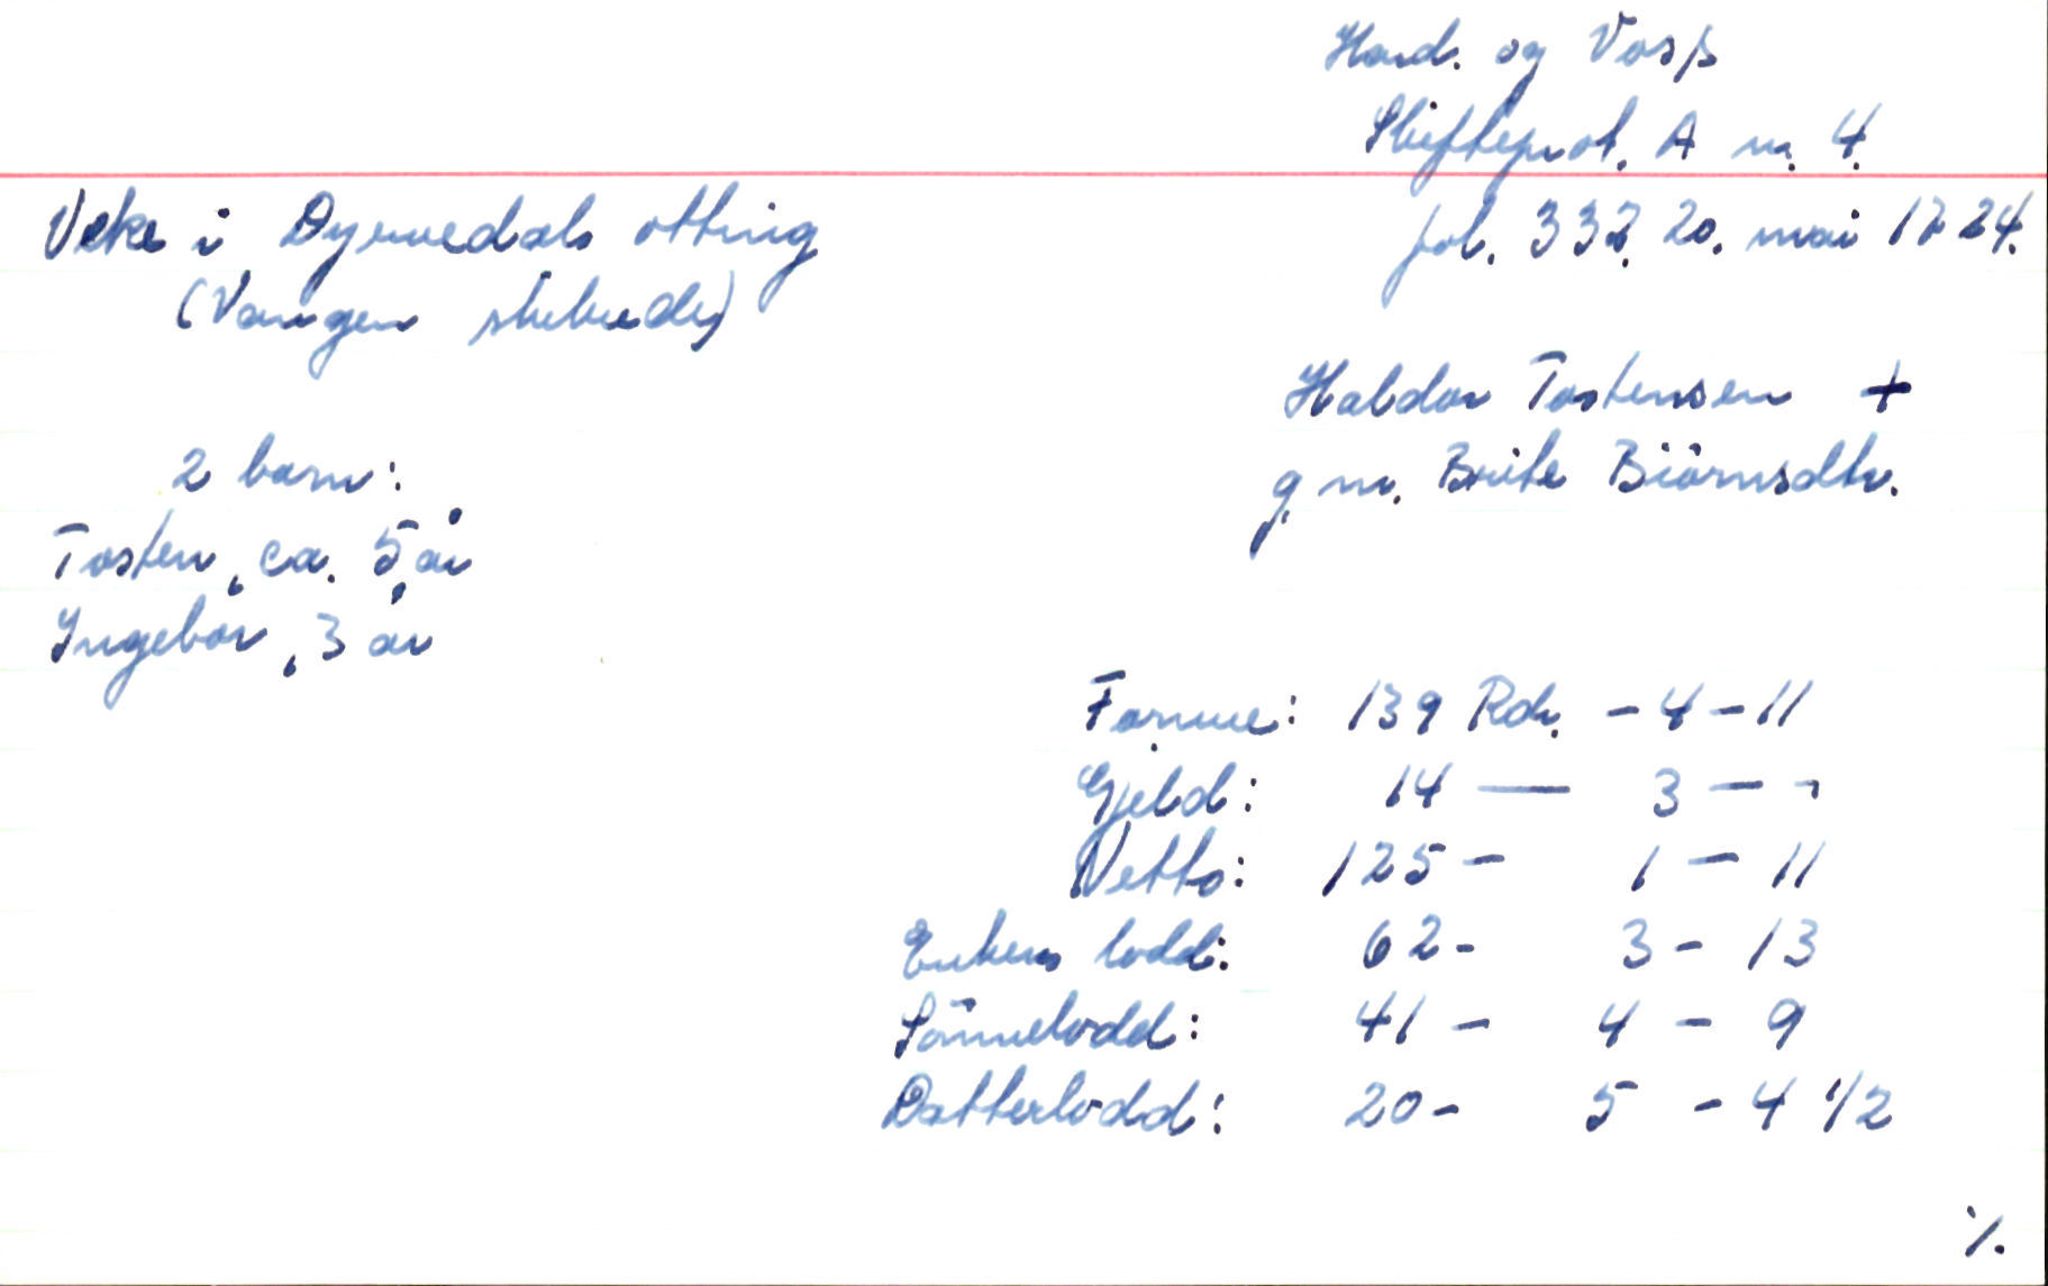 Hard. og Voss
Skifteprot. A nr. 4.
Veke i Dyrvedals otting
fol. 332. 20. mai 1724.
(Vangen skibrede)
Haldor Tostensen +
g.m. Brite Biörnsdtr.
2 barn:
Tosten, ca. 5 år
Ingebor, 3 år
Formue: 139 Rdr. - 4 - 11
Gjeld: 14 — 3 - -
Netto: 125 - 1 - 11
Enkens lodd: 62 - 3 - 13
Sönnelodd: 41 - 4 - 9
Datterlodd: 20 - 5 - 4 1/2
./.